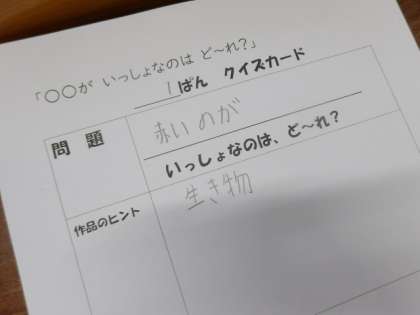 「〇〇が いっしょなのは ど〜れ？」
1ばん クイズカード
問題
赤いのが
いっしょなのは、ど〜れ？
作品のヒント
生き物